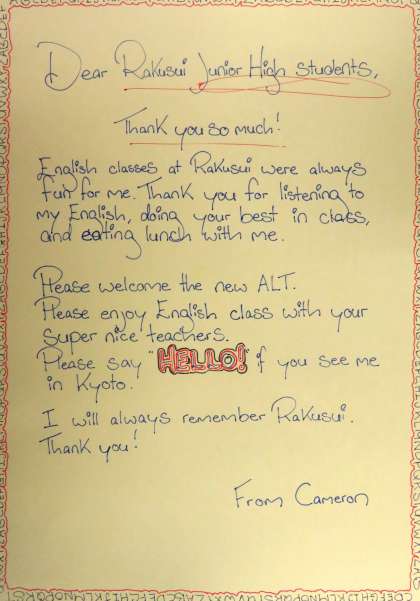 Dear Rakusui Junior High students,
Thank you so much!
English classes at Rakusui were always
fun for me. Thank you for listening to
my English, doing your best in class,
and eating lunch with me.
Please welcome the new ALT.
Please enjoy English class with your
super nice teachers.
Please say "HELLO!" if you see me
in Kyoto.
I will always remember Rakusui.
Thank you!
From Cameron